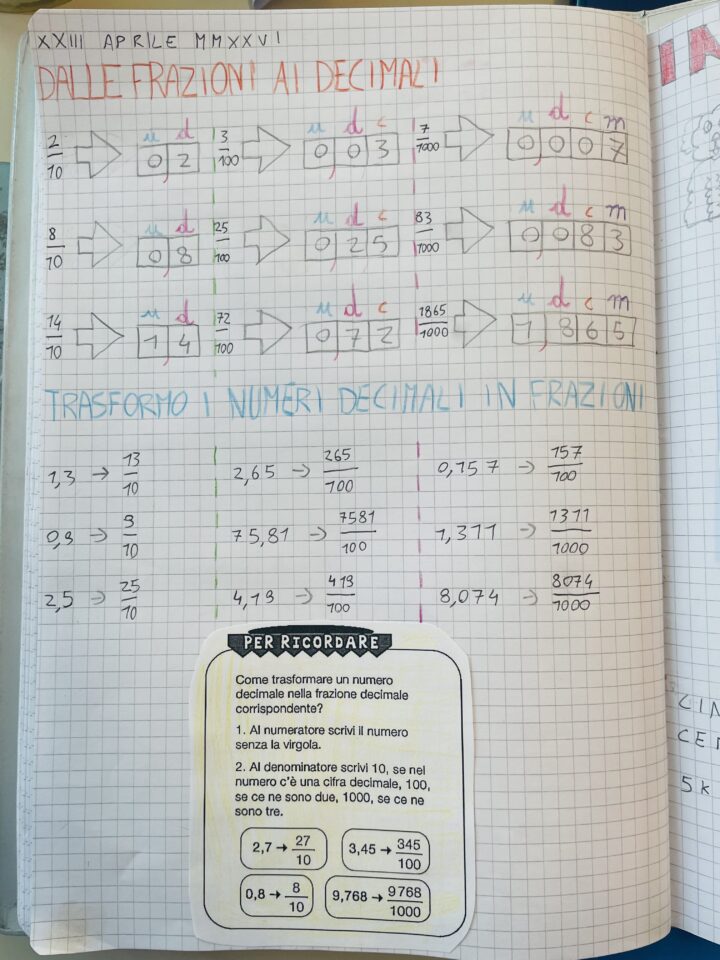 XXIII APRILE MMXXVI
DALLE FRAZIONI AI DECIMALI
u d u d c u d c m
2/10 0,2 3/100 0,03 7/1000 0,007
u d u d c u d c m
8/10 0,8 25/100 0,25 83/1000 0,083
u d u d c u d c m
14/10 1,4 72/100 0,72 1865/1000 1,865
TRASFORMO I NUMERI DECIMALI IN FRAZIONI
1,3 → 13/10 2,65 → 265/100 0,157 → 157/100
0,9 → 9/10 75,81 → 7581/100 1,311 → 1311/1000
2,5 → 25/10 4,19 → 419/100 8,074 → 8074/1000
PER RICORDARE
Come trasformare un numero
decimale nella frazione decimale
corrispondente?
1. Al numeratore scrivi il numero
senza la virgola.
2. Al denominatore scrivi 10, se nel
numero c'è una cifra decimale, 100,
se ce ne sono due, 1000, se ce ne
sono tre.
2,7 → 27/10 3,45 → 345/100
0,8 → 8/10 9,768 → 9768/1000